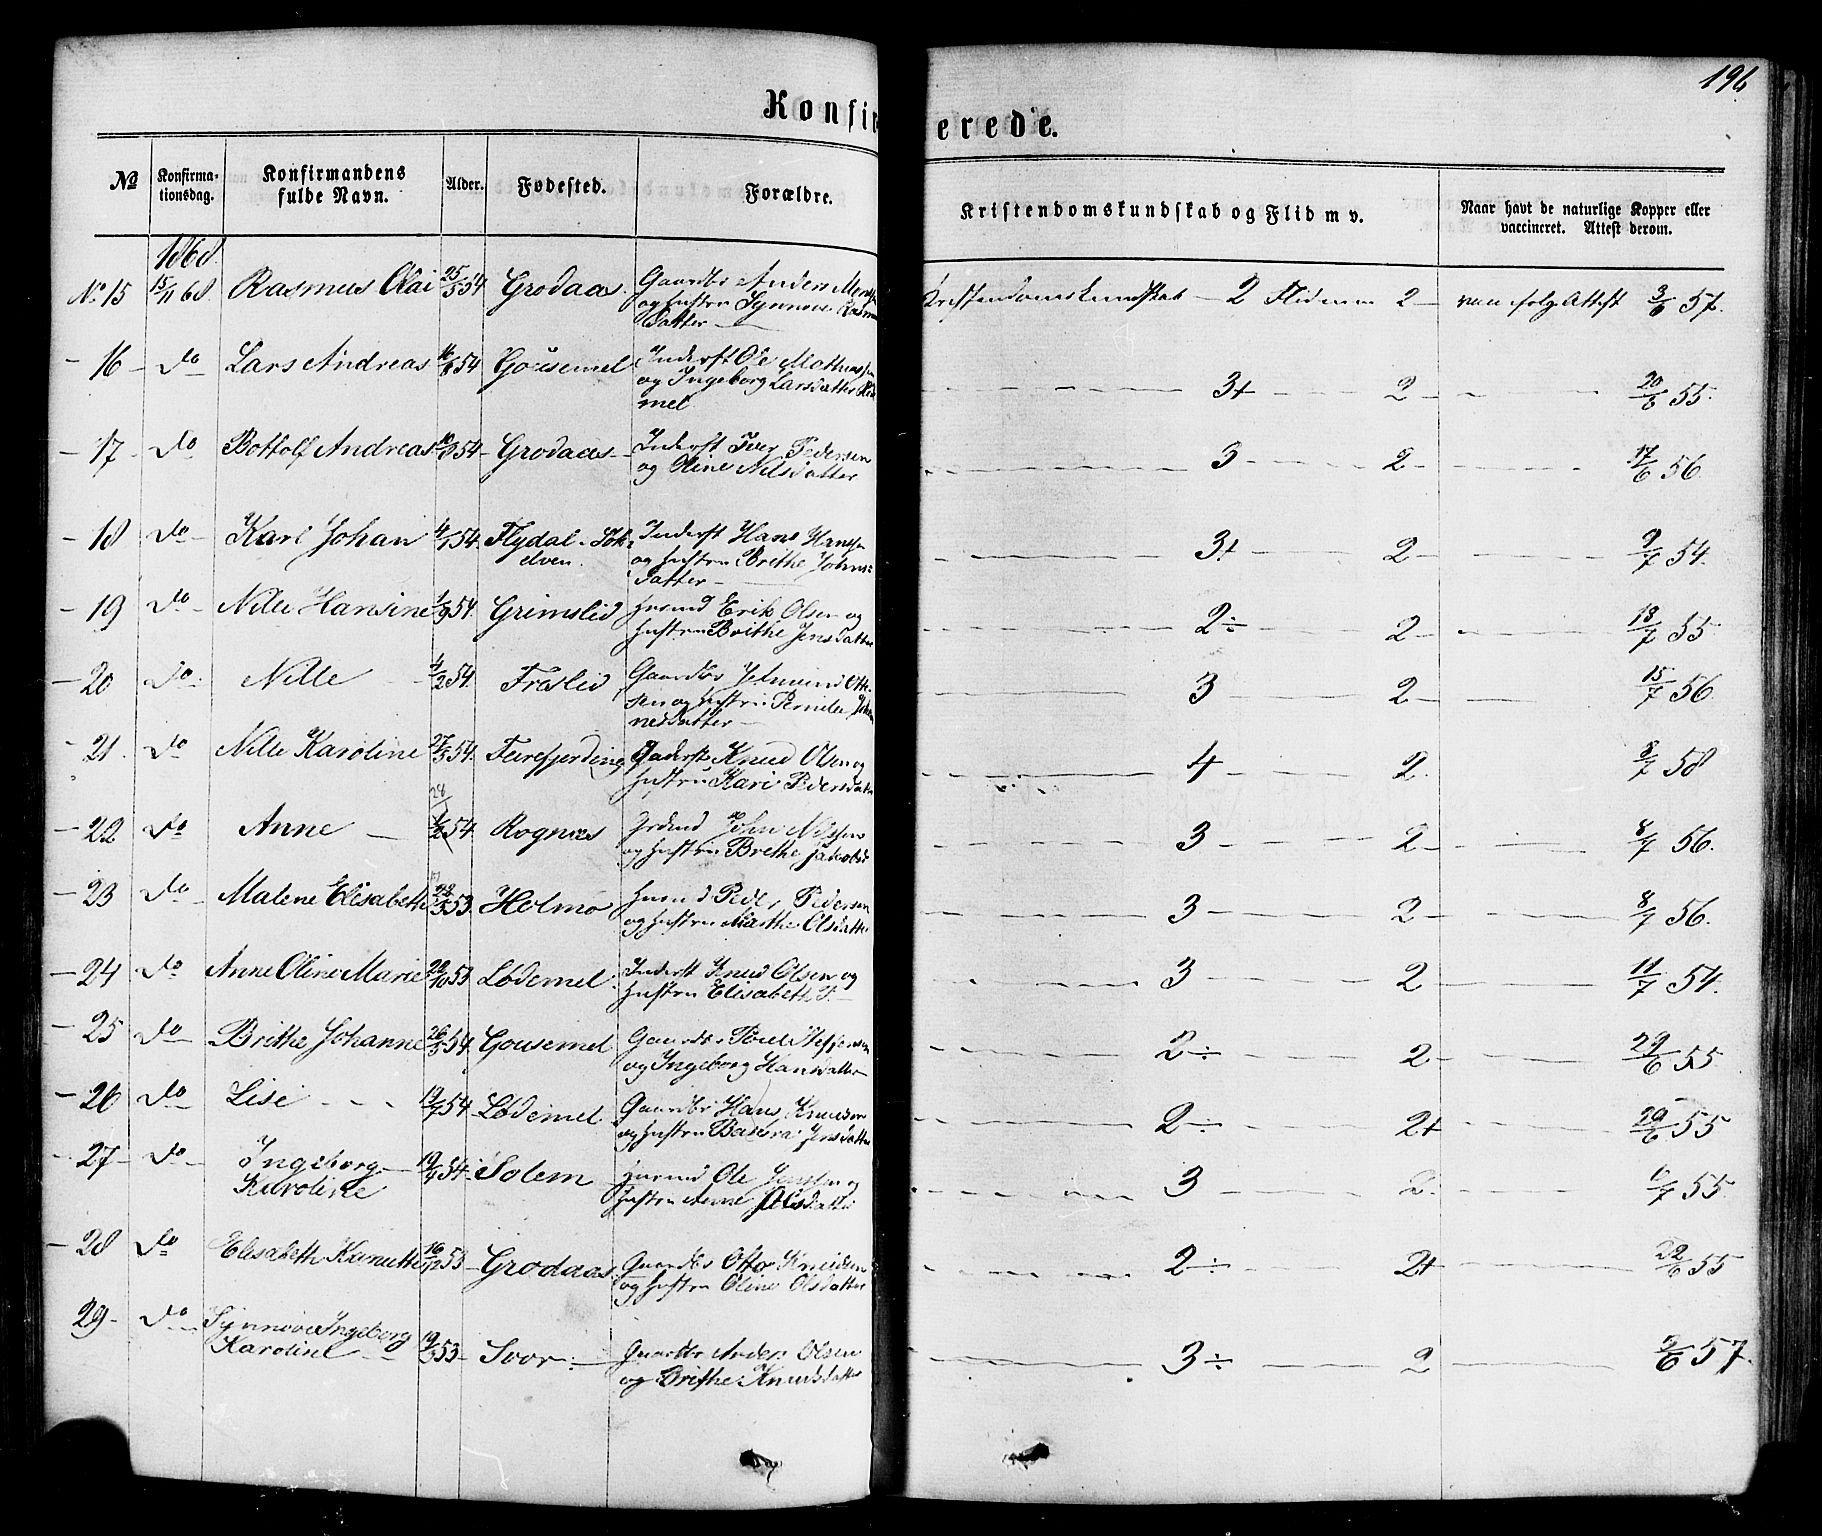 196
Konfir erede.
No
Konfirma-
tionsdag.
Konfirmandens
fulde Navn.
Alder.
Fødested.
Forældre.
Kristendomskundskab og Flid m v.
Naar havt de naturlige Kopper eller
vaccineret. Attest derom.
1868.
No 15 15/11 68 Rasmus Olai 25/5 54 Grodaas. Gaardbr Anders
og Hustru Synneve
Datter —
Kristendomskundskab — 2 Flid m m 2 — Attest 3/6 57.
— 16 — Do Lars Andreas 54 Gousemel Inderst Ole
og Ingeborg Larsdatter
mel
3+ 2 20/6 55.
— 17 — Do Bottolf Andreas 54 — Grodaas — Inderst Iver Pedersen
og Oline Nilsdatter
3 2 — 17/6 56.
— 18 Do — Karl Johan 54. Flydal
elven.
Inderst Hans
og Hustru Brithe Johns
datter —
3+ 2 — 9/7 54.
— 19 Do — Nille Hansine 1/9 54. Grimslid Husmd Erik Olsen og
Hustru Brithe Jensdatter
2÷ 2 — 18/7 55
— 20 Do — Nille 4/2 54. Fraslid Gaardbr Jetmund Otte-
sen og Hustru Pernille
nesdatter —
3 2 — 15/7 56
— 21. Do Nille Karoline 27/3 54. Inderst Knud Olsen og
Hustru Kari Pedersdatter
4 2. 8/7 58
28
— 22 Do Anne — 54. Rognæs John
og Hustru Brithe
3 2 — 8/7 56.
— 23 Do — Malene Elisabeth 53. Holmø Husmd Peder Pedersen
og Hustru Marthe Olsdatter
3 2 — 8/7 56.
— 24 Do Anne Oline Marie 53 Lødemel. Inderst Knud Olsen og
Hustru Elisabeth
3 2 11/7 54.
— 25 Do — Brithe Johanne 26/3 54. Gousemel Gaardbr Poul Steffensen
og Ingeborg Hansdatter
2÷ 2 — 29/6 55
— 26 Do Lise 54 Lødemel. Gaardbr Hans Knudsen
og Hustru Jensdatter
2÷ 2+ 29/6 55
— 27 — Do — Ingeborg
Karoline
54. Solem Husmd Ole Jensen og
Hustru Anne
3 2. 55
— 28 Do Elisabeth Knutte 16/12 53 — Grodaas. Gaardbr Otto Knudsen
og Hustru Oline Olsdatter
2÷ 2+ 22/6 55
29 — Do Synnøve Ingeborg
Karoline
53 — Svor. — Gaardbr Anders Olsen
og Brithe Knudsdatter
3÷ 2 57.